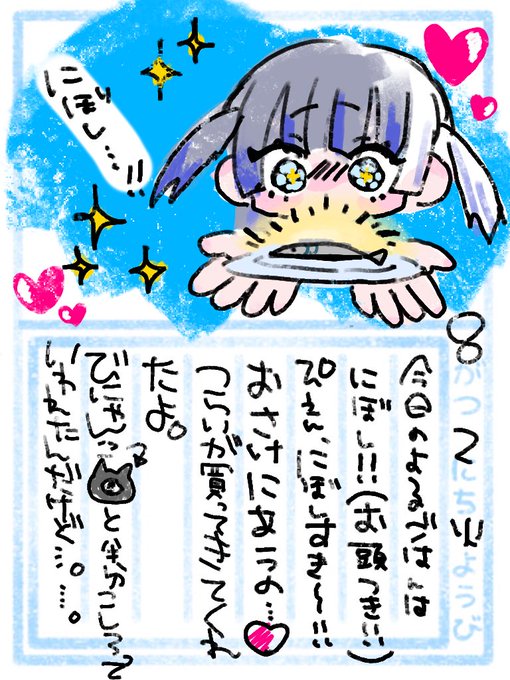 にぼし…!!
8がつ2にち火ようび
今日のよるごはんは
にぼし!!(お頭つき!!)
ぴえん、にぼしすき〜!!
おさけにあうの…♡
つらいが買ってきてくれ
たよ。
びにゃんっと半分こしろって
いわれたんだけど…。…。